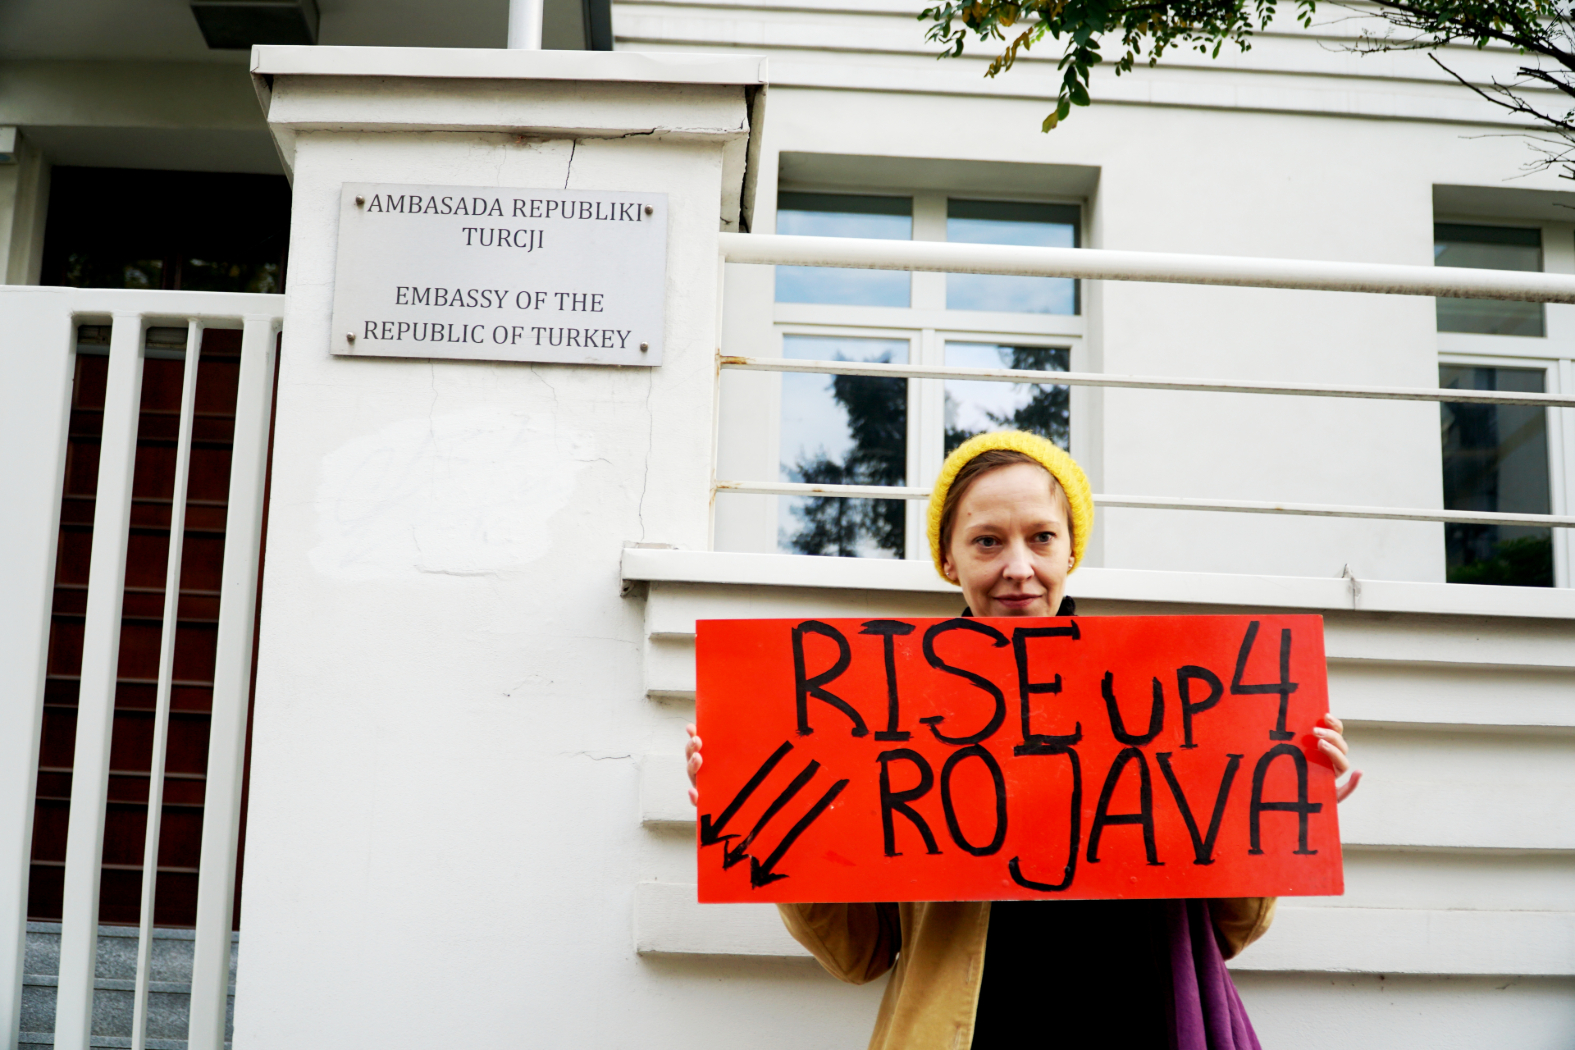 AMBASADA REPUBLIKI
TURCJI
EMBASSY OF THE
REPUBLIC OF TURKEY
RISE UP 4
ROJAVA